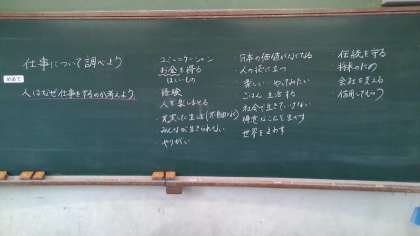 仕事について調べよう
めあて
人はなぜ仕事をするのか考えよう
コミュニケーション
お金を得る
ほしいもの
経験
人を楽しませる
・充実した生活(不自由なく)
みんなが生きられない
やりがい
・日本の価値がなくなる
人の役に立つ
・楽しい やってみたい
ごはん 生活する
・社会で生きていけない
得意なことを生かす
世界をまわす
・伝統を守る
将来のため
会社を支える
信用してもらう